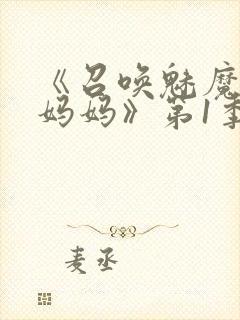 《召唤魅魔
妈妈》第1季
麦丞